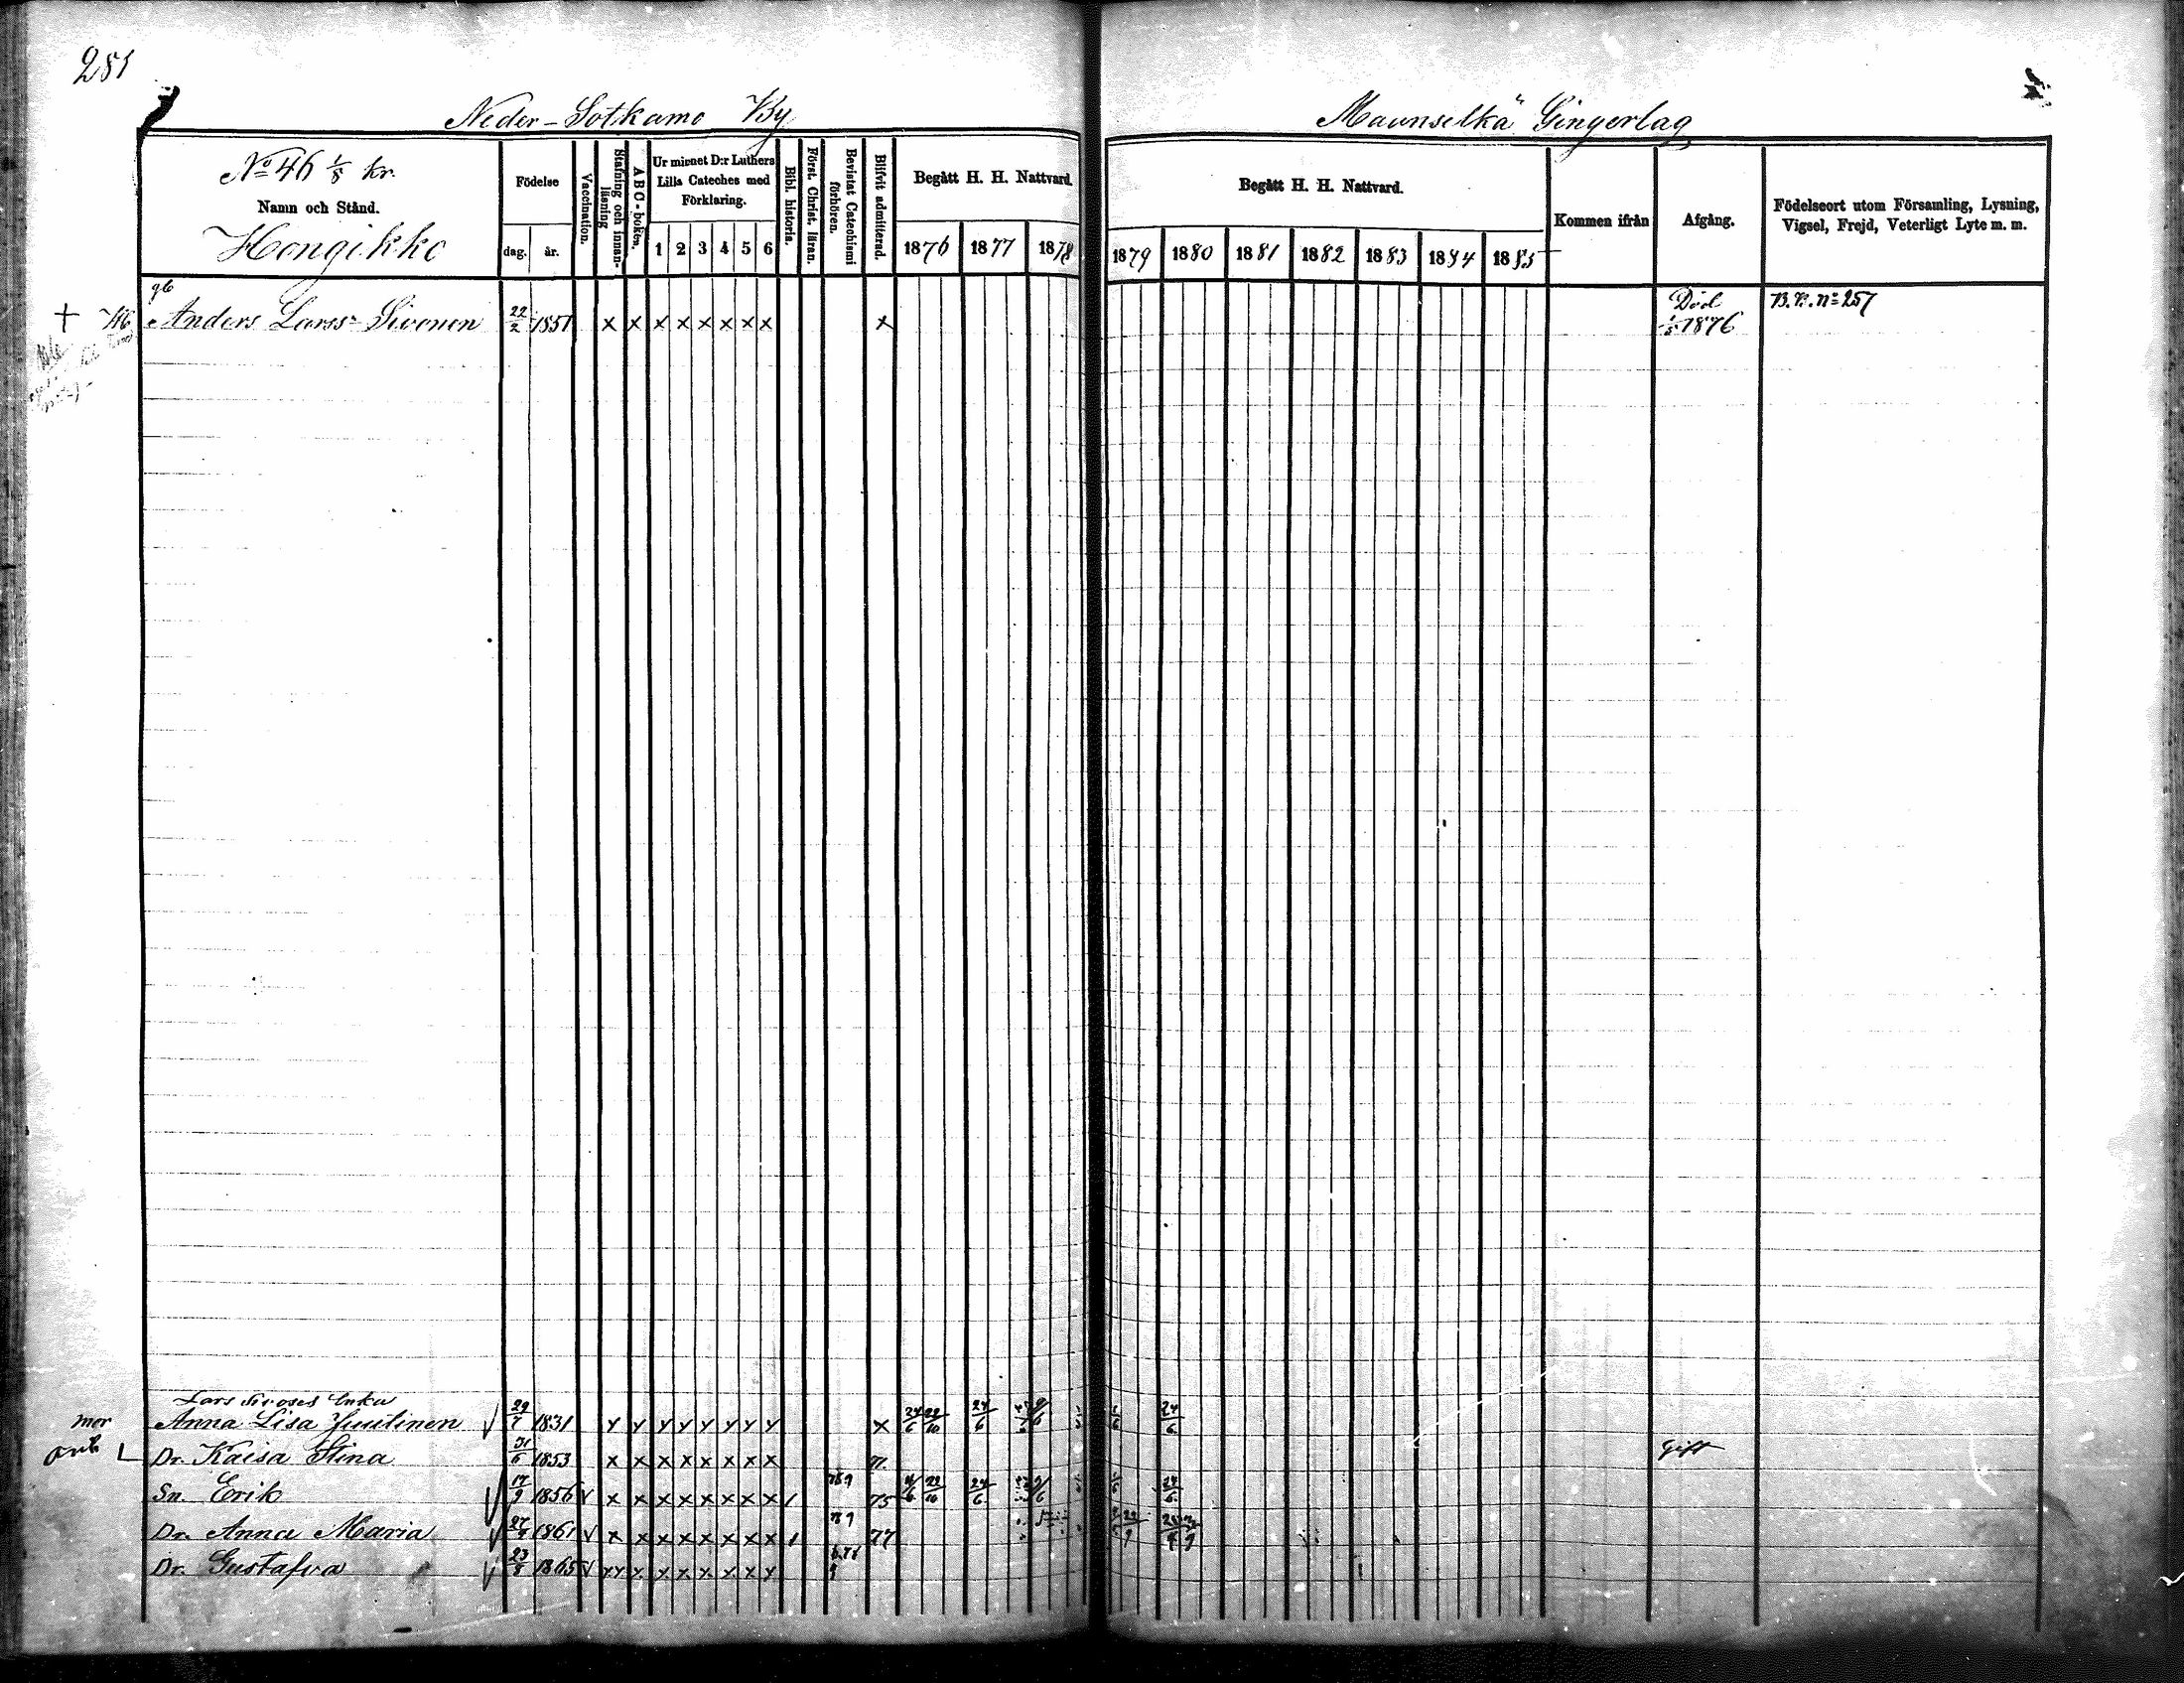 281
Neder-Sotkamo By
Maanselkä Gingerlag
No 46 1/8 kr.
Namn och Stånd.
Hongikko
Födelse
dag. år.
Vaccination.
Stafning och innanläsning
A B C-boken.
Ur minnet D:r Luthers
Lilla Cateches med
Förklaring.
1 2 3 4 5 6
Bibl. historia.
Först. Christ. läran.
Bevistat Catechismi förhören.
Blifvit admitterad.
Begått H. H. Nattvard.
1876 1877 1878
Begått H. H. Nattvard.
1879 1880 1881 1882 1883 1884 1885
Kommen ifrån
Afgång.
Födelseort utom Församling, Lysning,
Vigsel, Frejd, Veterligt Lyte m. m.
Anders Larss. Sivonen 22/2 1851 x x x x x x x x x Död 1876 B. B. no 257
Lars Sivoses Enka
mor Anna Lisa Juutinen 29/7 1831 x 24/6 22/10 24/6 24/6
Dr. Kaisa Stina 31/5 1853 x x x x x x x x Gift
Sn. Erik 17/9 1856 x x x x x x x x 75 22/10 24/6 24/6
Dr. Anna Maria 1861 x x x x x x x x 77
Dr. Gustafva 23/8 1865